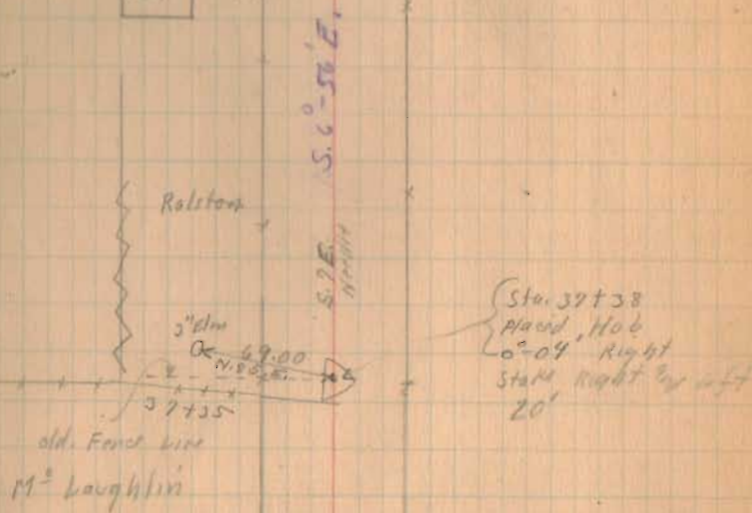 S. 6°-56' E.
Ralston
S. 7 E.
3" Elm
69.00
N. 85 E.
37+35
old. Fence Line
Mc Laughlin
Sta. 37+38
Placed Hob
0°-04' Right
Stake Right left
20'